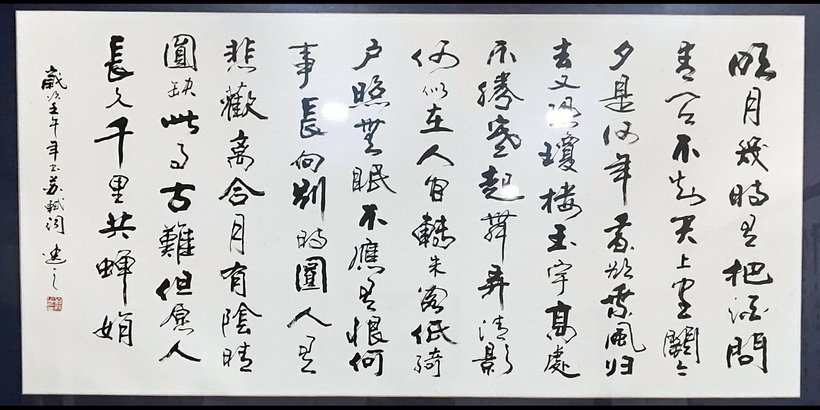 明月幾時有把酒問
青天不知天上宮闕今
夕是何年我欲乘風归
去又恐瓊樓玉宇高處
不勝寒起舞弄清影
何似在人间轉朱閣低綺
户照無眠不應有恨何
事長向别時圓人有
悲歡离合月有陰晴
圓缺此事古難但愿人
長久千里共蟬娟
歲次壬午年书苏軾词 建之